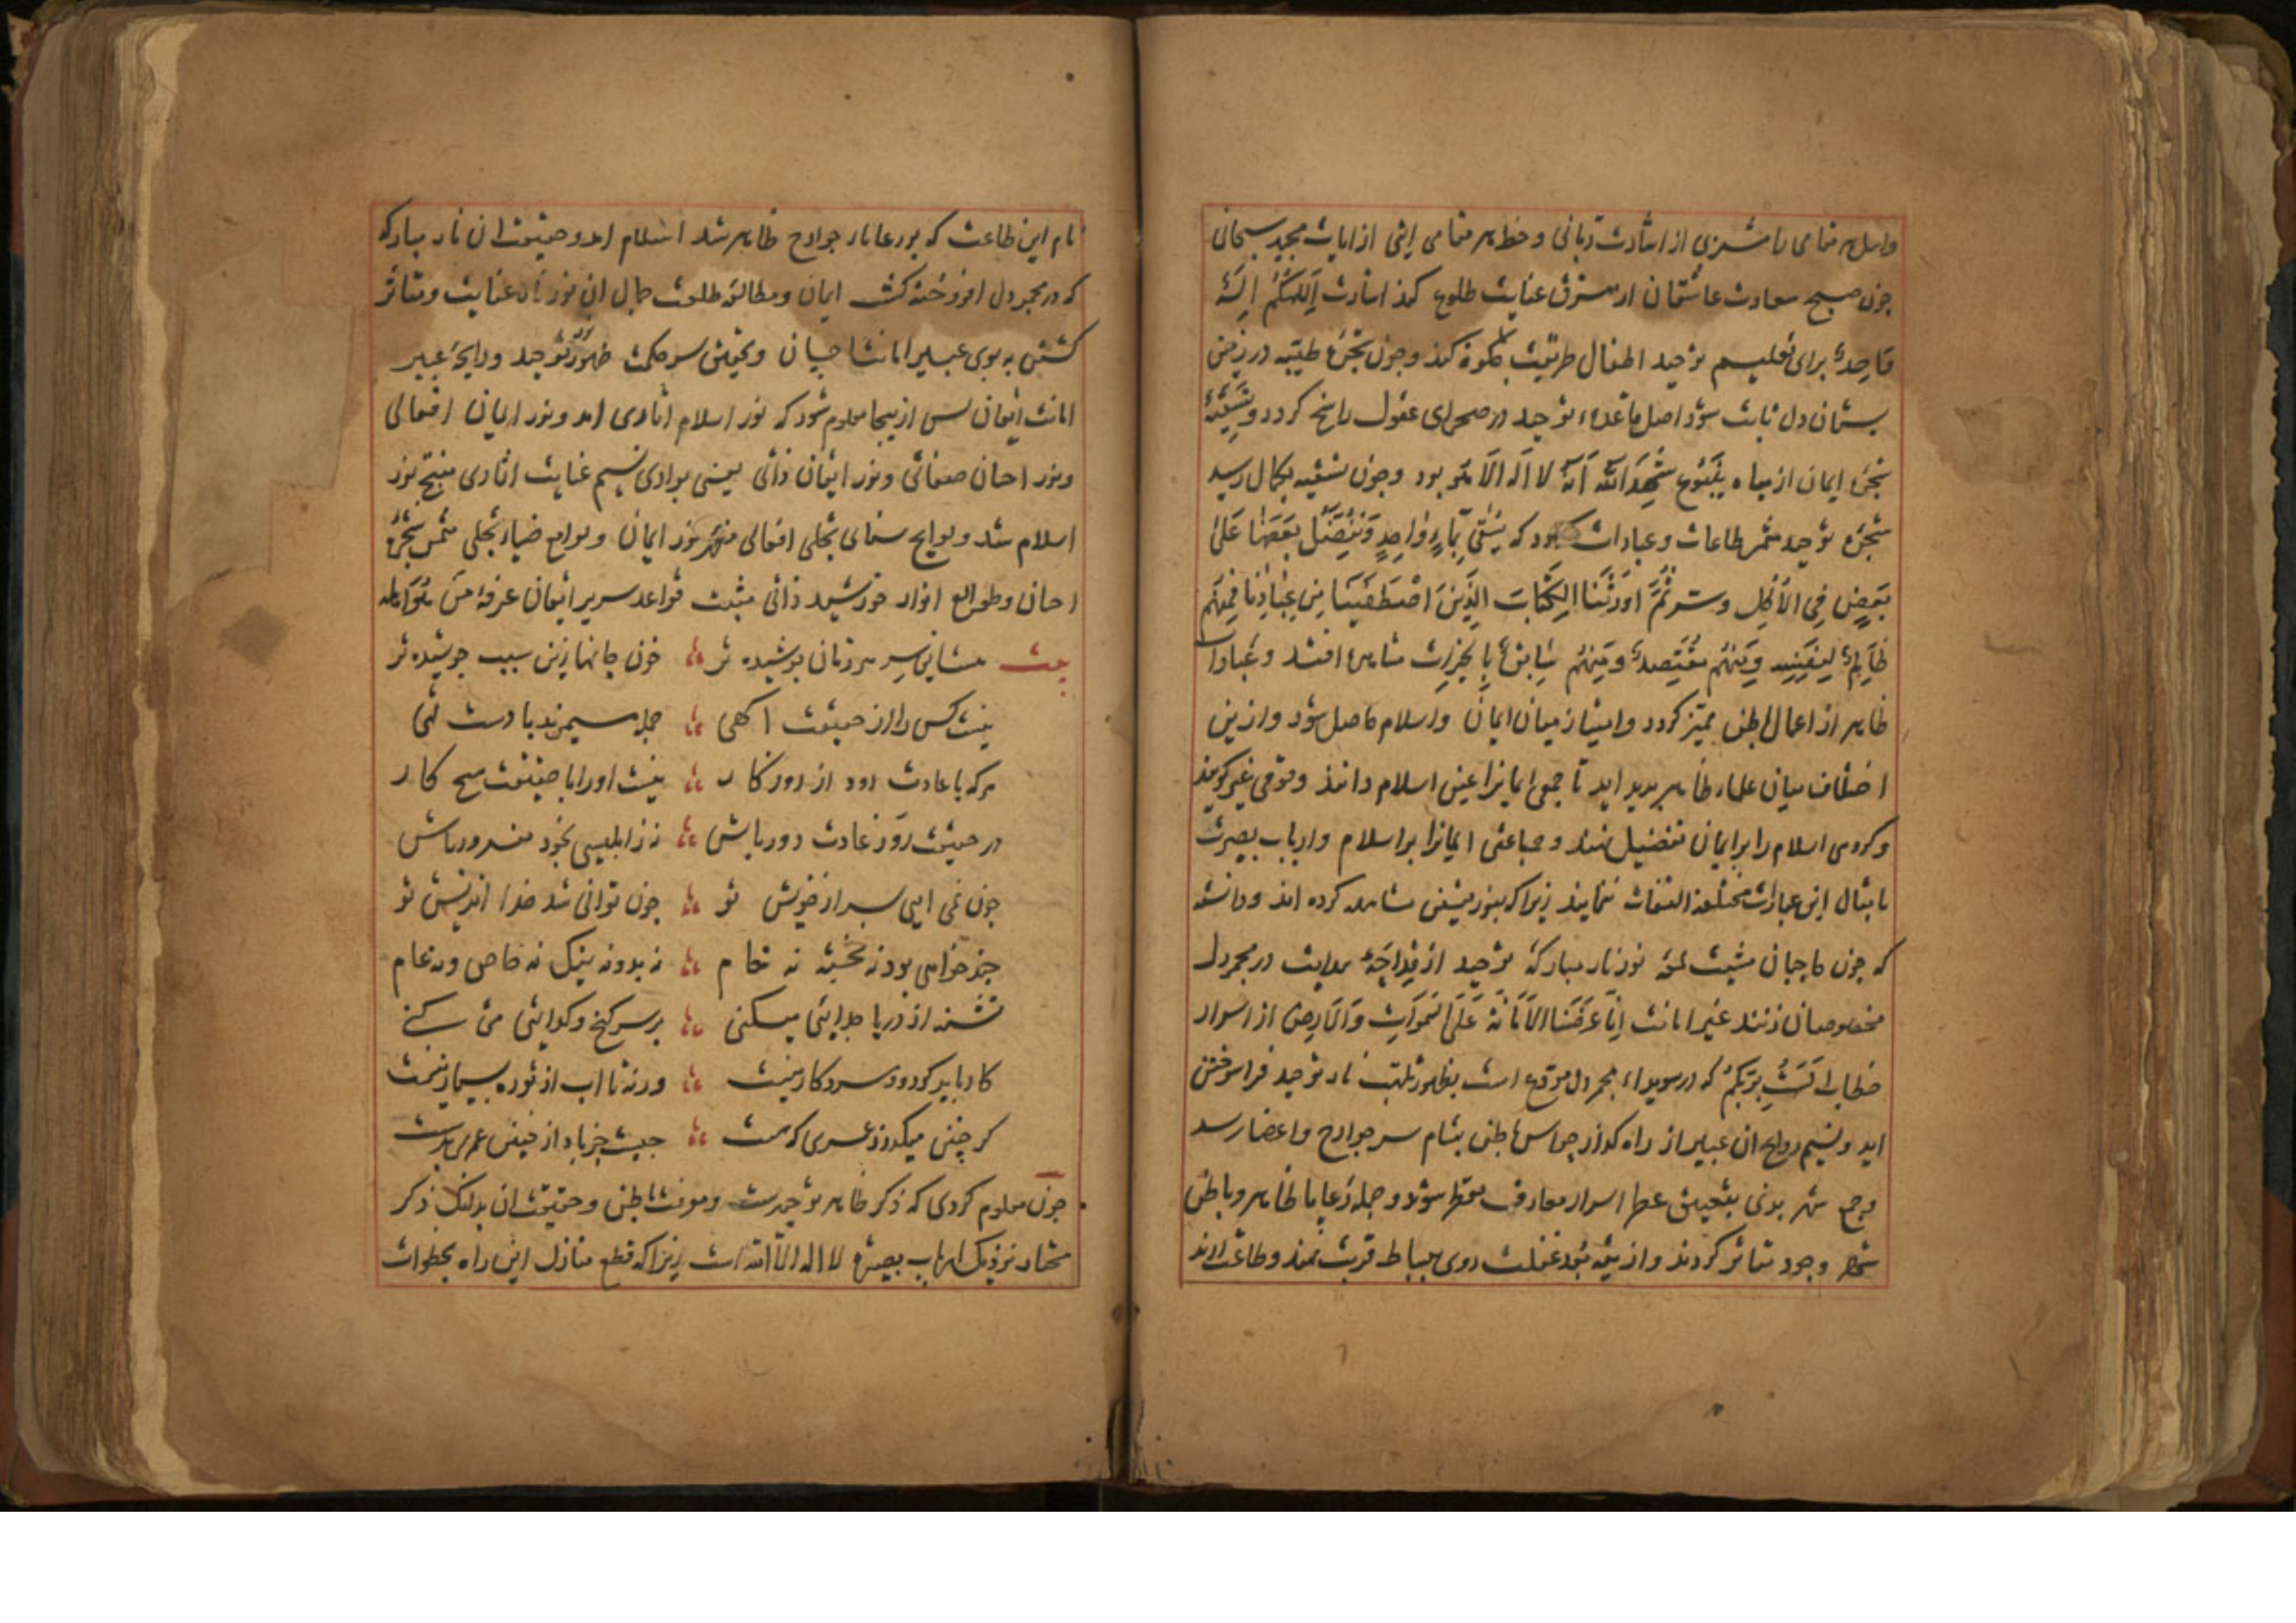 واهل هر مقامی را شربی از اشارت ربانی و حظ هر مقامی اثی از ایات مجید سبحانی
چون صبح سعادت عاشقان از مشرق عنایت طلوع کند اشارت اِلٰهُکُمْ اِلٰهٌ
وَاحِدٌ برای تعلیم توحید اطفال طریقت جلوه کند و چون شجرهٔ طیبه در زمین
بستان دل ثابت شود اصل قاعدهٔ توحید در صحرای عقول راسخ کردد و تسقیهٔ
شجرهٔ ایمان از میاه ینبوع شَهِدَ اللّٰه اَنّهُ لا اله الا هُو بود و چون تسقیه بکمال رسید
شجرهٔ توحید مثمر طاعات و عبادات بود که یُسْقٰی بِمَاءٍ وَاحِدٍ وَنُفَضِّلُ بَعْضَهَا عَلٰی
بَعْضٍ فِی الْاُکُلِ و سر ثُمَّ اَوْرَثْنَا الْکِتَابَ الَّذِینَ اصْطَفَیْنَا مِنْ عِبَادِنَا فَمِنْهُمْ
ظَالِمٌ لِنَفْسِهِ وَمِنْهُم مُقْتَصِدٌ وَمِنْهُم سَابِقٌ بِالْخَیْرَاتِ مشاهده افتد و عبادات
ظاهر از اعمال باطن ممیز کردد و امتیاز میان ایمان و اسلام حاصل شود و ازین
اختلاف میان علماء ظاهر بدید اید تا جمعی ایمانرا عین اسلام دانند و قومی غیر کویند
و کروهی اسلام را بر ایمان تفضیل نهند و جماعتی ایمانرا بر اسلام و ارباب بصیرت
بامثال این عبارات مختلفه التفات ننمایند زیرا که بنور یقین مشاهده کرده اند و دانسته
که چون حاجبان مشیت لمعه نور نار مبارکهٔ توحید از قداحهٔ هدایت در مجمر دل
مخصوصان زنند عنبر امانت اِنَّا عَرَضْنَا الْاَمَانَةَ عَلَی السَّمٰوَاتِ وَالْاَرْضِ از اسرار
خطاب اَلَسْتُ بِرَبِّکُمْ که در سویداء مجمر دل مودع است بظهور تلهب نار توحید فرا سوختن
اید و نسیم روایح ان عبیر از راه کذار حواس باطن بمشام سر جوارح و اعضا رسد
و جمع شهر بدنی بتعبیق عطر اسرار معارف معطر شود و جمله رعایا ظاهر و باطن
شهر وجود متاثر کردند و از تیه بُعد غفلت روی ببساط قربت نهند و طاعت ارند
نام این طاعت که بر رعایاء جوارح ظاهر شد اسلام امد و حقیقت ان نار مبارکه
که در مجمر دل افروخته کشت ایمان و مطالعه طلعت جمال ان نور عنایت و متاثر
کشتن به بوی عبیر امانت احسان و تحقیق سر حکمت ظهور نور توحید و رایحهٔ عبیر
امانت ایقان بس ازینجا معلوم شود که نور اسلام اثاری امد و نور ایمان افعالی
و نور احسان صفاتی و نور ایقان ذاتی یعنی بوادی نسیم عنایت اثاری منتج نور
اسلام شد و لوایح سنای تجلی افعالی مظهر نور ایمان و لوامع ضیاء تجلی مثمر شجرهٔ
احسان و طوالع انوار خورشید ذاتی مثبت قواعد سریر ایقان عرفه من
بیت هست این سِر هر زمان بوشیده تر خون جانها زین سبب جوشیده تر
نیست کس را از حقیقت اکهی جمله میمیرند با دست تهی
هرکه با عادت رود از روزکار نیست او را با حقیقت هیچ کار
در حقیقت رَو ز عادت دور باش نز ابلیسی بخود مغرور باش
چون نمی ایی بسر از خویش تو چون توانی شد خدا اندیش تو
چند خواهی بود نه بخته نه خام نه بد و نه نیک نه خاص و نه عام
تشنه از دریا جدایی میکنی بر سر کنج و کدایی می کنی
کار باید کرد و مرد کار نیست ورنه تا اب از تو ره بسیار نیست
کر چنین میکذرد عمری که هست چیست جز باد از چنین عمری بدست
چون معلوم کردی که ذکر ظاهر توحیدست و معرفت باطن و حقیقت ان بدانک ذکر
مختار نزدیک ارباب بصیرت لا اله الا الله است زیرا که قطع منازل این راه بخطوات